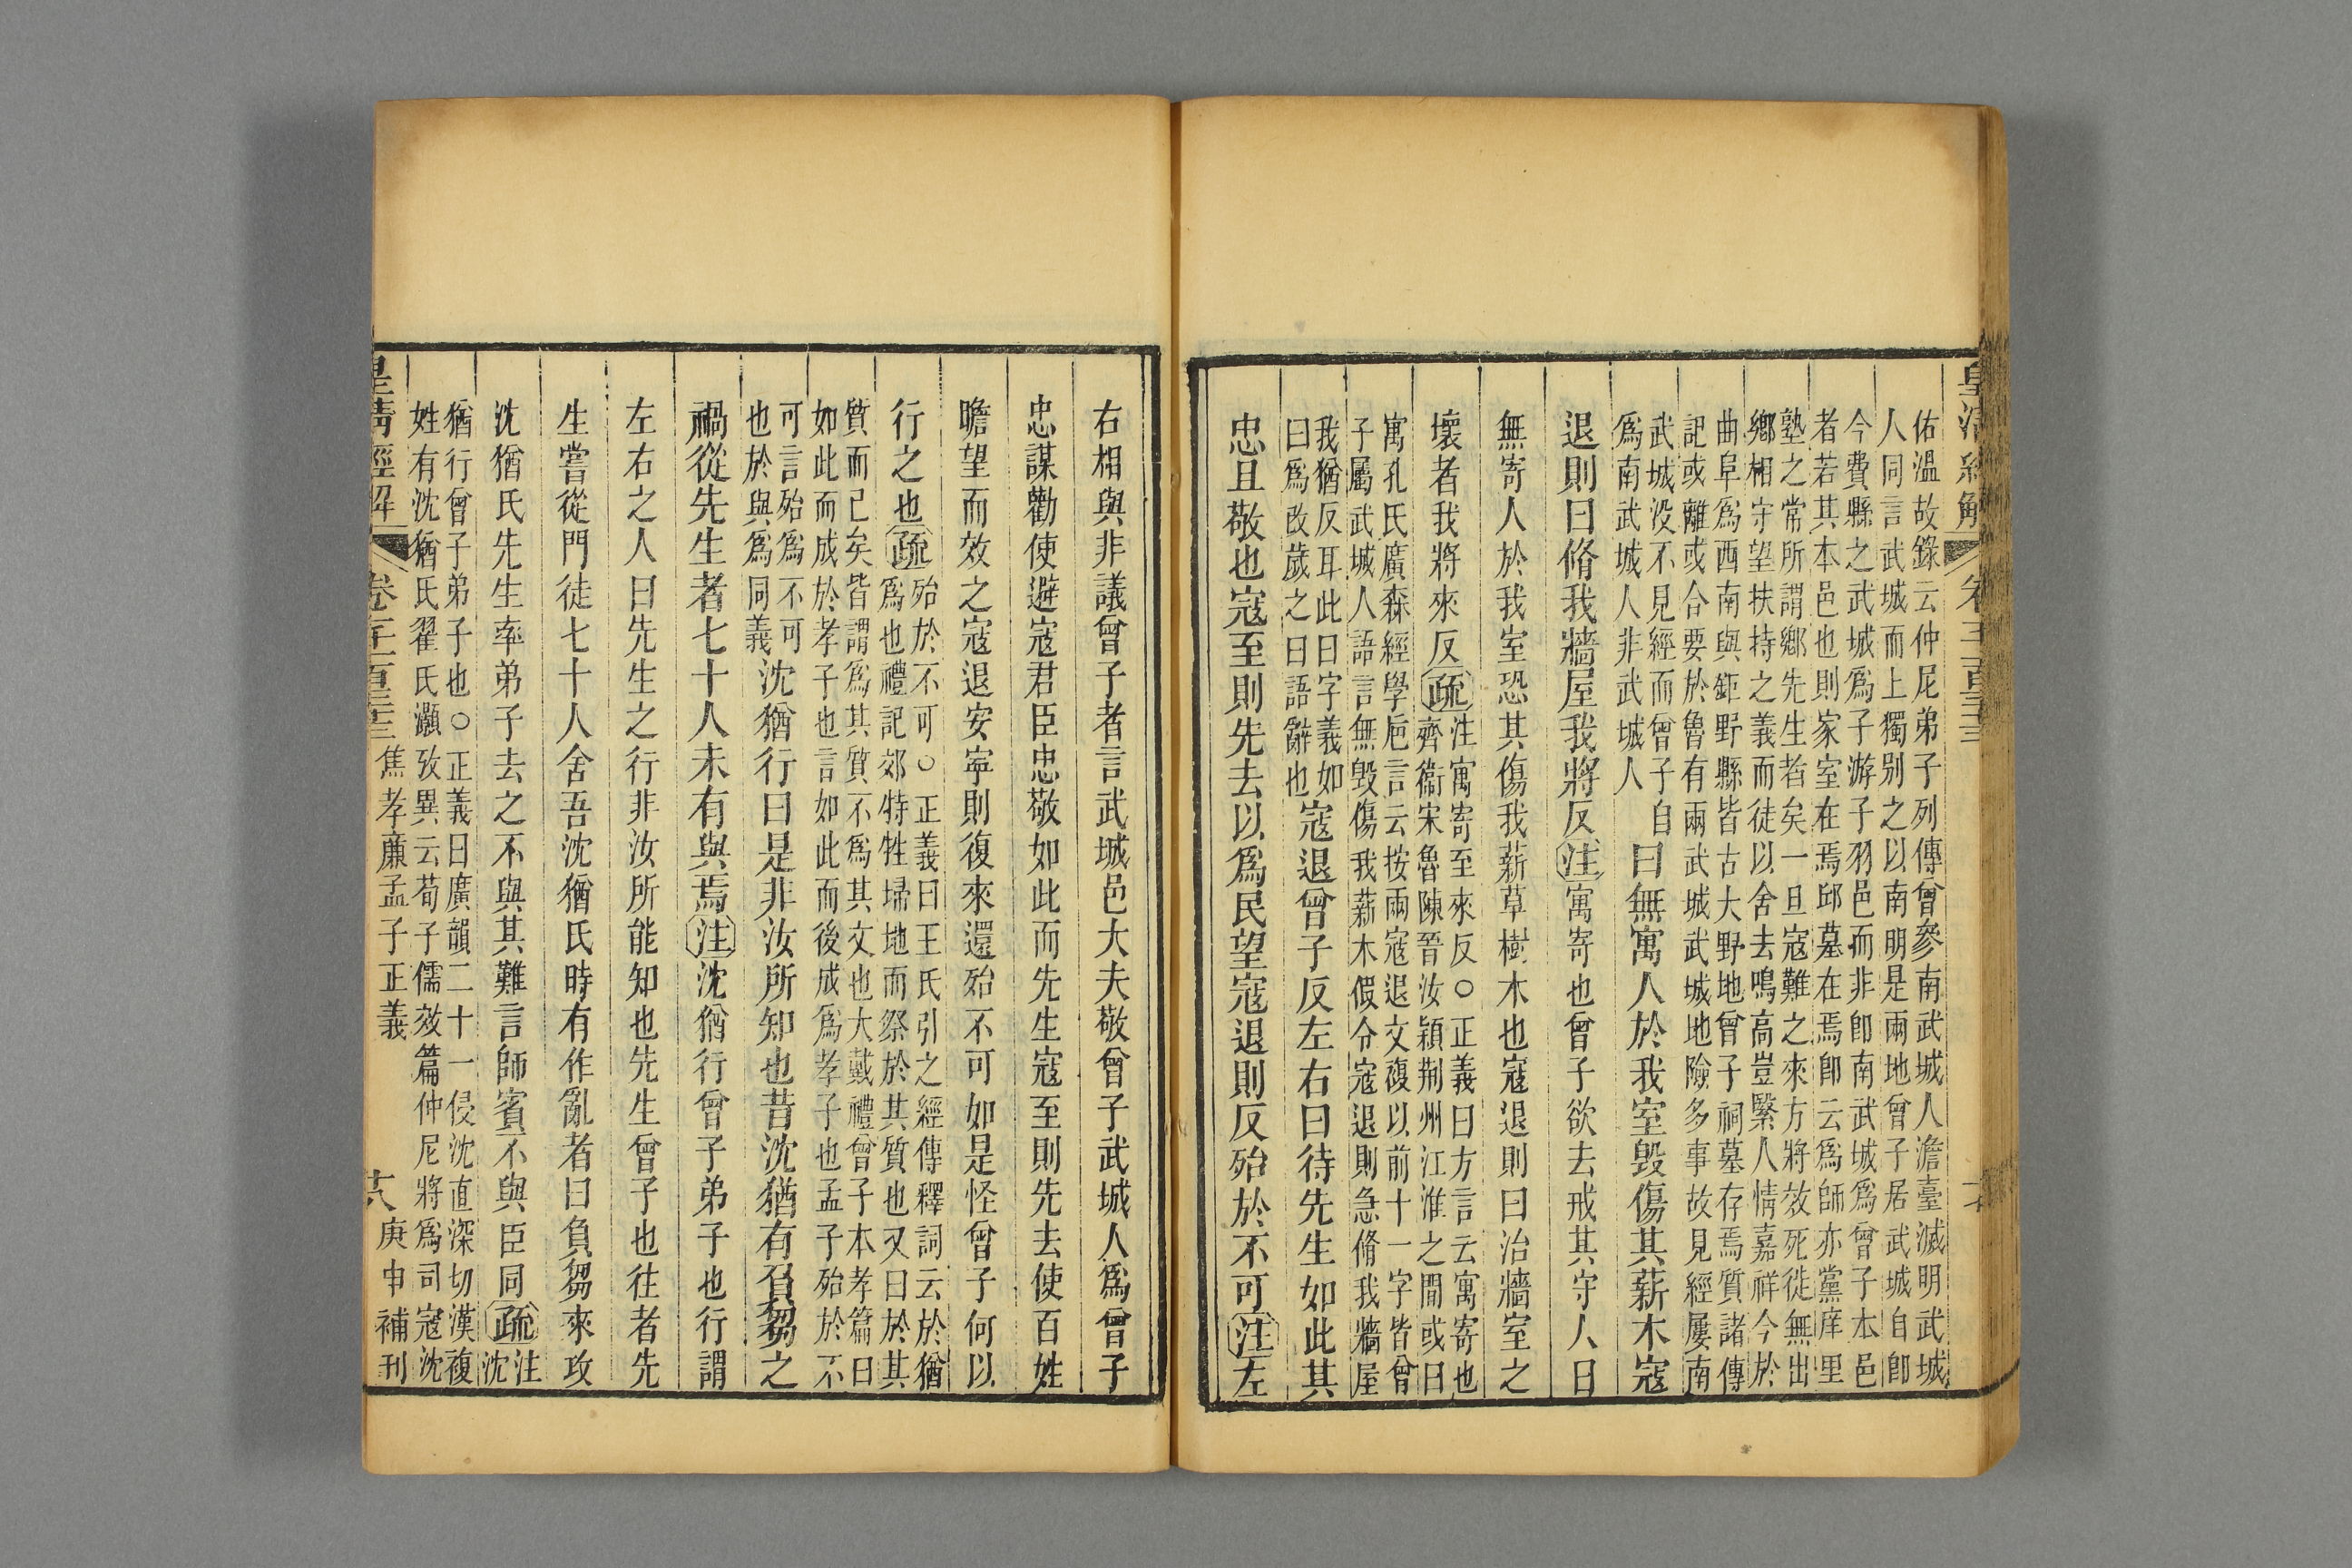 皇清經解
佑溫故錄云仲尼弟子列傳曾參南武城人澹臺滅明武城
人同言武城而上獨别之以南明是兩地曾子居武城自卽
今費縣之武城爲子游子羽邑而非卽南武城爲曾子本邑
者若其本邑也則家室在焉邱墓在焉卽云爲師亦黨庠里
塾之常所謂鄉先生者矣一旦寇難之來方將效死徙無出
鄉相守望扶持之義而徒以舍去鳴高豈緊人情嘉祥今於
曲阜爲西南與鉅野縣皆古大野地曾子祠墓存焉質諸傳
記或離或合要於魯有兩武城武城地險多事故見經屢南
武城沒不見經而曾子自
爲南武城人非武城人
曰無寓人於我室毀傷其薪木寇
退則曰脩我牆屋我將反注寓寄也曾子欲去戒其守人曰
無寄人於我室恐其傷我薪草樹木也寇退則曰治牆室之
壞者我將來反疏
注寓寄至來反○正義曰方言云寓寄也
齊衞宋魯陳晉汝潁荆州江淮之閒或曰
寓孔氏廣森經學巵言云按兩寇退文複以前十一字皆曾
子屬武城人語言無毀傷我薪木假令寇退則急脩我牆屋
我猶反耳此曰字義如
曰爲改歲之曰語辭也
寇退曾子反左右曰待先生如此其
忠且敬也寇至則先去以爲民望寇退則反殆於不可注左
右相與非議曾子者言武城邑大夫敬曾子武城人爲曾子
忠謀勸使避寇君臣忠敬如此而先生寇至則先去使百姓
瞻望而效之寇退安寧則復來還殆不可如是怪曾子何以
行之也疏
殆於不可○正義曰王氏引之經傳釋詞云於猶
爲也禮記郊特牲埽地而祭於其質也又曰於其
質而已矣皆謂爲其質不爲其文也大戴禮曾子本孝篇曰
如此而成於孝子也言如此而後成爲孝子也孟子殆於不
可言殆爲不可
也於與爲同義
沈猶行曰是非汝所知也昔沈猶有負芻之
禍從先生者七十人未有與焉注沈猶行曾子弟子也行謂
左右之人曰先生之行非汝所能知也先生曾子也往者先
生嘗從門徒七十人舍吾沈猶氏時有作亂者曰負芻來攻
沈猶氏先生率弟子去之不與其難言師賓不與臣同疏
注
沈
猶行曾子弟子也○正義曰廣韻二十一侵沈直深切漢複
姓有沈猶氏翟氏灝攷異云荀子儒效篇仲尼將爲司寇沈
皇清經解 卷千一百三十三 焦孝廉孟子正義 十八 庚申補刊